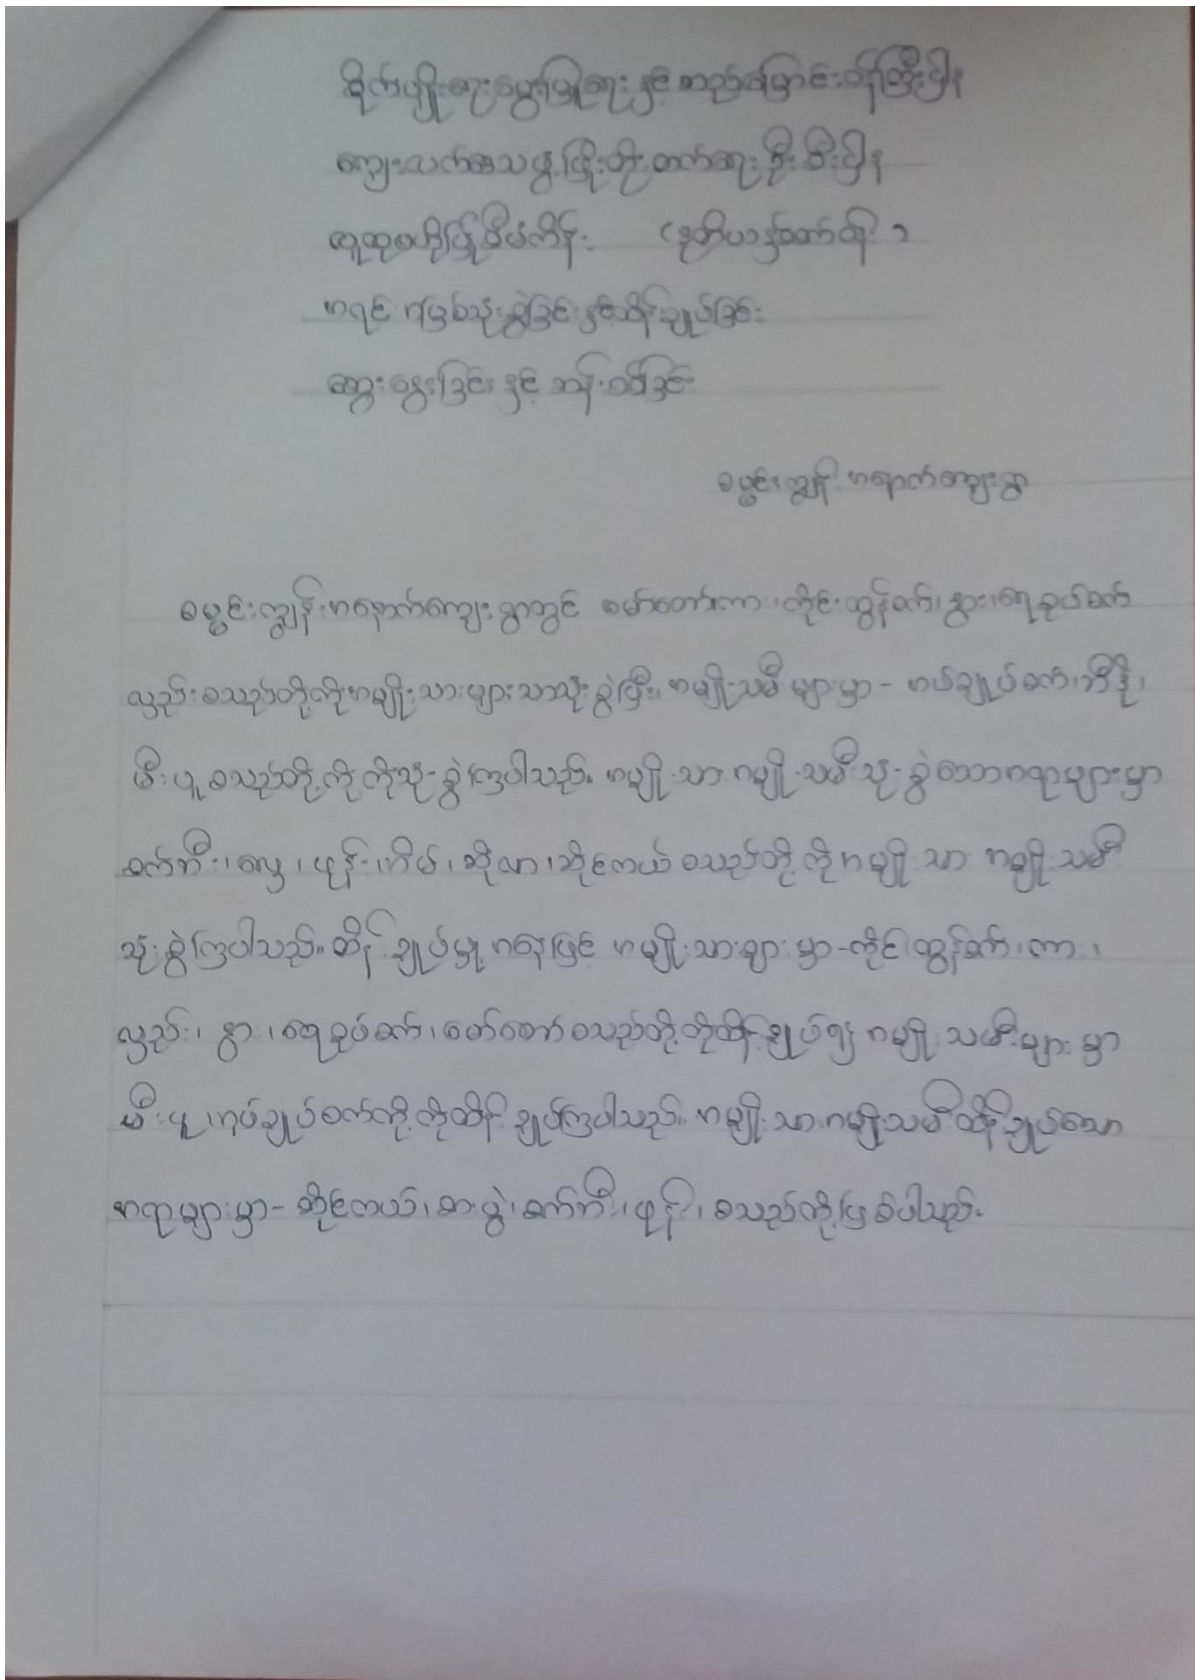 စိုက်ပျိုးရေး၊ မွေးမြူရေးနှင့် ဆည်မြောင်းဝန်ကြီးဌာန
ကျေးလက်ဒေသဖွံ့ဖြိုးတိုးတက်ရေးဦးစီးဌာန
လူထုဗဟိုပြုစီမံကိန်း (ဒုတိယနှစ်ပတ်လည်)
အရင်းအမြစ်သုံးစွဲခြင်းနှင့်ထိန်းချုပ်ခြင်း
ဆွေးနွေးခြင်းနှင့် ဆန်းစစ်ခြင်း
ကျွန်းအနောက်ကျေးရွာ
ကျွန်းအနောက်ကျေးရွာတွင် မော်တော်ကား၊ ကိုင်းထွန်စက်၊ နွား၊ ရေစုပ်စက်
လှည်း စသည်တို့ကိုအမျိုးသားများသာသုံးစွဲပြီး၊ အမျိုးသမီးများမှာ - အပ်ချုပ်စက်၊ ဘီဒို၊
မီးပူ စသည်တို့ကို ကိုသုံးစွဲကြပါသည်။ အမျိုးသား အမျိုးသမီးသုံးစွဲသောအရာများမှာ
စက်ဘီး၊ လှေ၊ ဖုန်း၊ အိမ်၊ ဆိုလာ၊ ဆိုင်ကယ် စသည်တို့ကိုအမျိုးသား အမျိုးသမီး
သုံးစွဲကြပါသည်။ ထိန်းချုပ်မှုအနေဖြင့် အမျိုးသားများမှာ - ကိုင်းထွန်စက်၊ ကား၊
လှည်း၊ နွား၊ ရေစုပ်စက်၊ မော်တော် စသည်တို့ကိုထိန်းချုပ်၍ အမျိုးသမီးများမှာ
မီးပူ၊ အပ်ချုပ်စက်တို့ကိုထိန်းချုပ်ကြပါသည်။ အမျိုးသားအမျိုးသမီးထိန်းချုပ်သော
အရာများမှာ - ဆိုင်ကယ်၊ စားပွဲ၊ စက်ဘီး၊ ဖုန်း၊ စသည်တို့ဖြစ်ပါသည်။